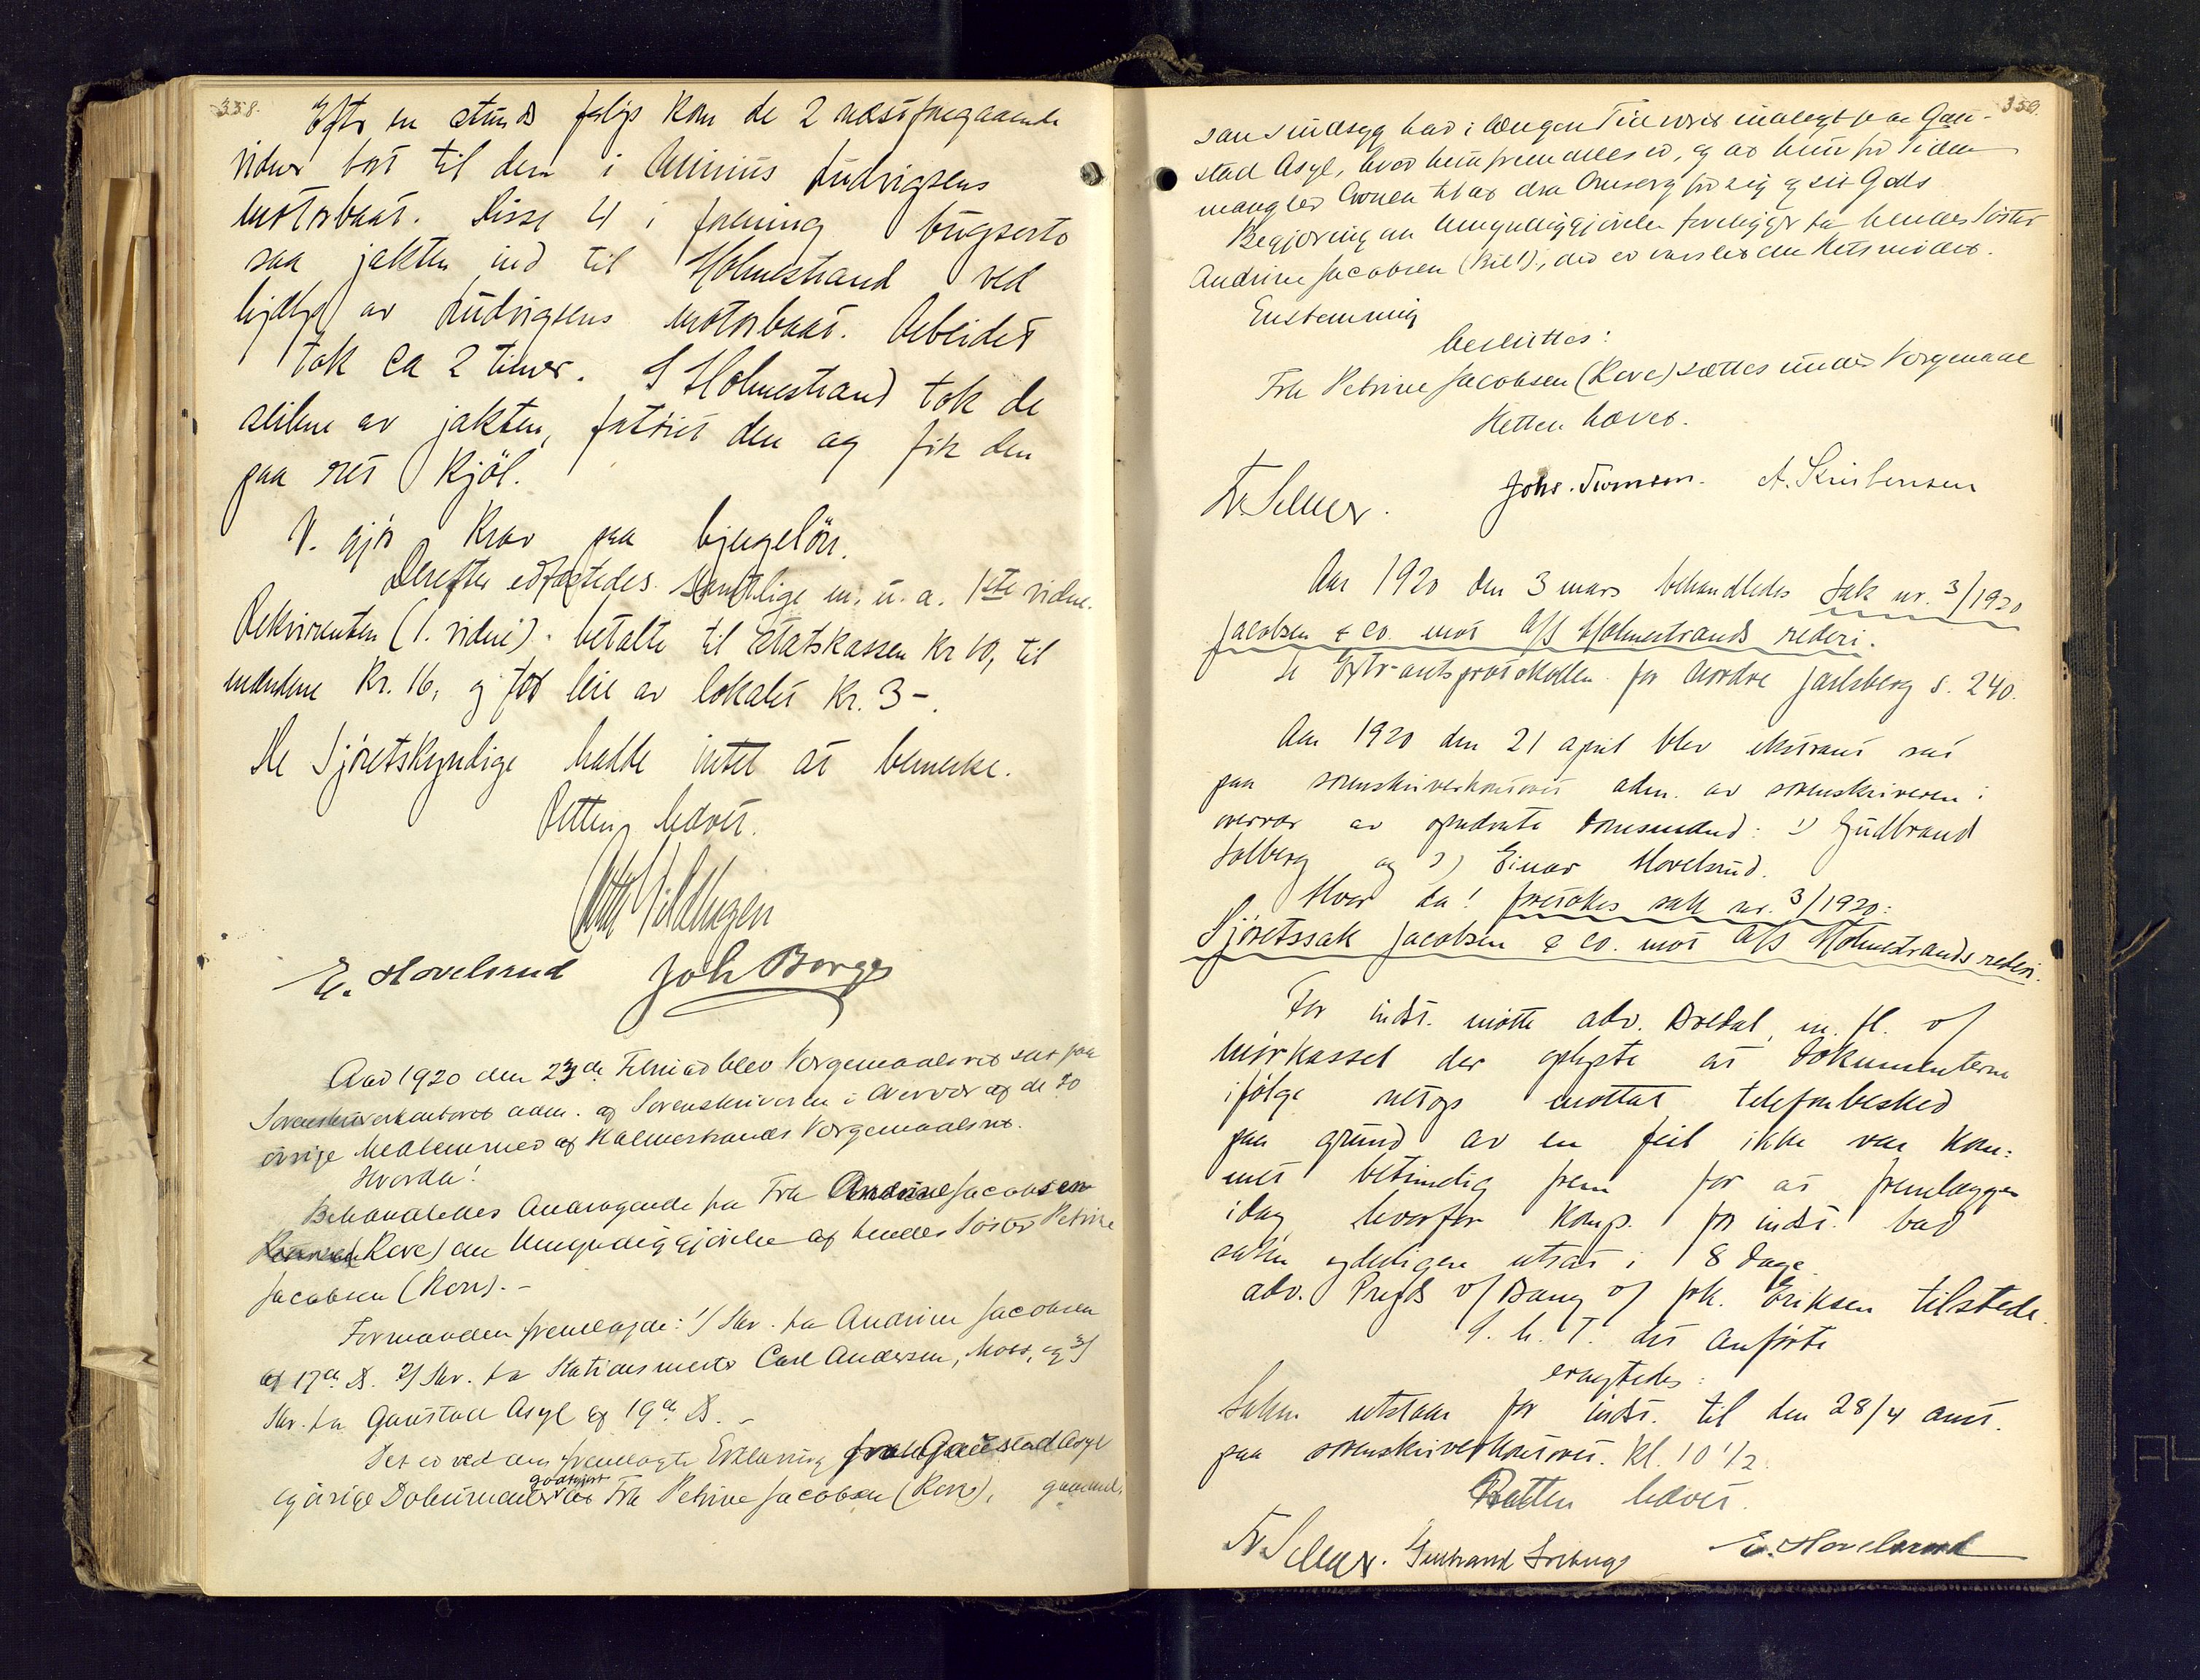 338.
Efter en stunds forløp kom de 2 næstforegaaende
vidner bort til dem i Ludvigsens
motorbaat. Disse 4 i forening bugserte
saa jakten ind til Holmestrand ved
hjælp av Ludvigsens motorbaat. Arbeidet
tok ca 2 timer. I Holmestrand tok de
seilene av jakten, fortøiet den og fik den
paa ret kjøl.
V. gjør krav paa bjergeløn.
Derefter edfæstedes samtlige m. u. a. 1ste vidne.
Rekvirenten (1. vidne) betalte til statskassen kr 10, til
mændene kr. 16, og for leie av lokalet kr. 3-.
De Sjøretskyndige hadde intet at bemerke.
Retten hævet.
E. Hovelsrud Joh Borge
Aar 1920 den 23de Februar blev Vergemaalsret sat paa
Sorenskriverkontoret adm. af Sorenskriveren i Overvær af de to
øvrige Medlemmer af Holmestrands Vergemaalsret.
Hvorda!
Behandledes Andragende fra Frk Andrine Jacobsen
(Rove) om Umyndiggjørelse af hendes Søster Petrine
Jacobsen (Rove). -
Formanden fremlagde: 1/ Skr. fra Andrine Jacobsen
af 17de ds. 2/ Skr. fra Stationsmester Carl Andersen, Moss, og 3/
Skr. fra Gaustad Asyl af 19de ds. -
Det er ved den fremlagte Erklæring fra Gaustad Asyl
og øvrige Dokumenter godtgjort at Frk Petrine Jacobsen (Rove),
359.
san sindssyg har i længere Tid været indlagt paa Gau-
stad Asyl, hvor hun fremdeles er, og at hun for Tiden
mangler Evnen til at dra Omsorg for sig og sit Gods
Begjæring om Umyndiggjørelse foreligger fra hendes Søster
Andrine Jacobsen (Bil 1), der er varslet om Retsmødet.
Enstemmig
besluttes:
Frk Petrine Jacobsen (Rove) sættes under Vergemaal
Retten hævet.
Fr. Selmer. A. Kristensen
Aar 1920 den 3 mars behandledes Sak nr. 3/1920
Jacobsen & Co. mot A/S Holmestrands rederi.
Se Extraretsprotokollen for Nordre Jarlsberg s. 240.
Aar 1920 den 21 april blev ekstraret sat
paa sorenskriverkontoret adm. av sorenskriveren i
overvær av opnævnte domsmænd: 1) Gudbrand
Solberg og 2) Einar Hovelsrud.
Hvor da! foretokes sak nr. 3/1920:
Sjøretssak Jacobsen & Co. mot A/S Holmestrands rederi.
For indst. møtte adv. Bredal, m. fl. v/
Mørkassel der oplyste at dokumenterne
ifølge netop mottat telefonbesked
paa grund av en feil ikke var kom:
met betimelig frem for at fremlægges
idag hvorfor komp. for indst. bad
saken yderligere utsat i 8 dage
adv. Preyds v/ Bang v/ fuldm. Eriksen tilstede.
I h. t. det anførte
eragtedes:
Saken utstaar for indst. til den 28/4 anst.
paa sorenskriverkontoret. Kl. 10 1/2.
Retten hævet.
Fr. Selmer. Gudbrand Solberg E. Hovelsrud